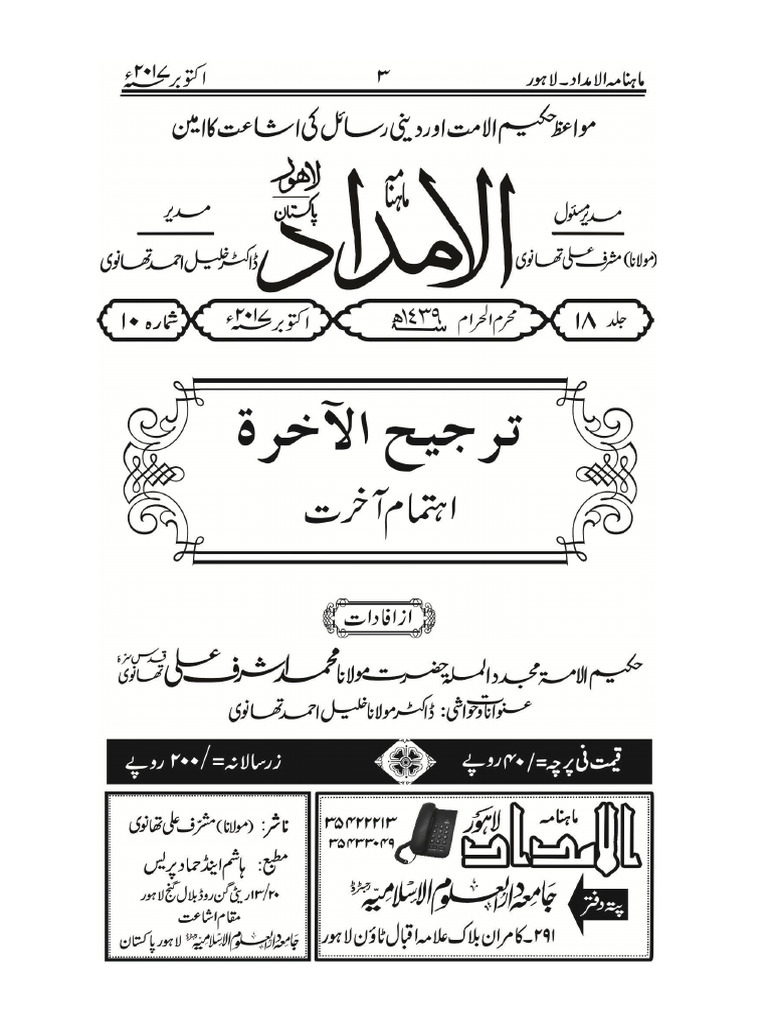 ماہنامہ الامداد۔ لاہور ۳ اکتوبر ۲۰۱۷ء
مواعظ حکیم الامت اور دینی رسائل کی اشاعت کا امین
ماہنامہ الامداد لاہور پاکستان
مدیر مسئول مدیر
(مولانا) مشرف علی تھانوی ڈاکٹر خلیل احمد تھانوی
جلد ۱۸ محرم الحرام ۱۴۳۹ھ اکتوبر ۲۰۱۷ء شمارہ ۱۰
ترجیح الآخرۃ
اہتمام آخرت
از افادات
حکیم الامۃ مجدد الملۃ حضرت مولانا محمد اشرف علی تھانوی قدس سرہٗ
عنوانات وحواشی: ڈاکٹر مولانا خلیل احمد تھانوی
قیمت فی پرچہ =/۴۰ روپے زرسالانہ =/۲۰۰ روپے
ماہنامہ الامداد لاہور
۳۵۴۲۲۲۱۳
۳۵۴۳۳۰۴۹
پتہ دفتر جامعہ دارالعلوم الاسلامیہ رجسٹرڈ
۲۹۱۔ کامران بلاک علامہ اقبال ٹاؤن لاہور
ناشر: (مولانا) مشرف علی تھانوی
مطبع: ہاشم اینڈ حماد پریس
۱۳/۲۰ ریٹی گن روڈ بلال گنج لاہور
مقام اشاعت
جامعہ دارالعلوم الاسلامیہ رجسٹرڈ لاہور پاکستان